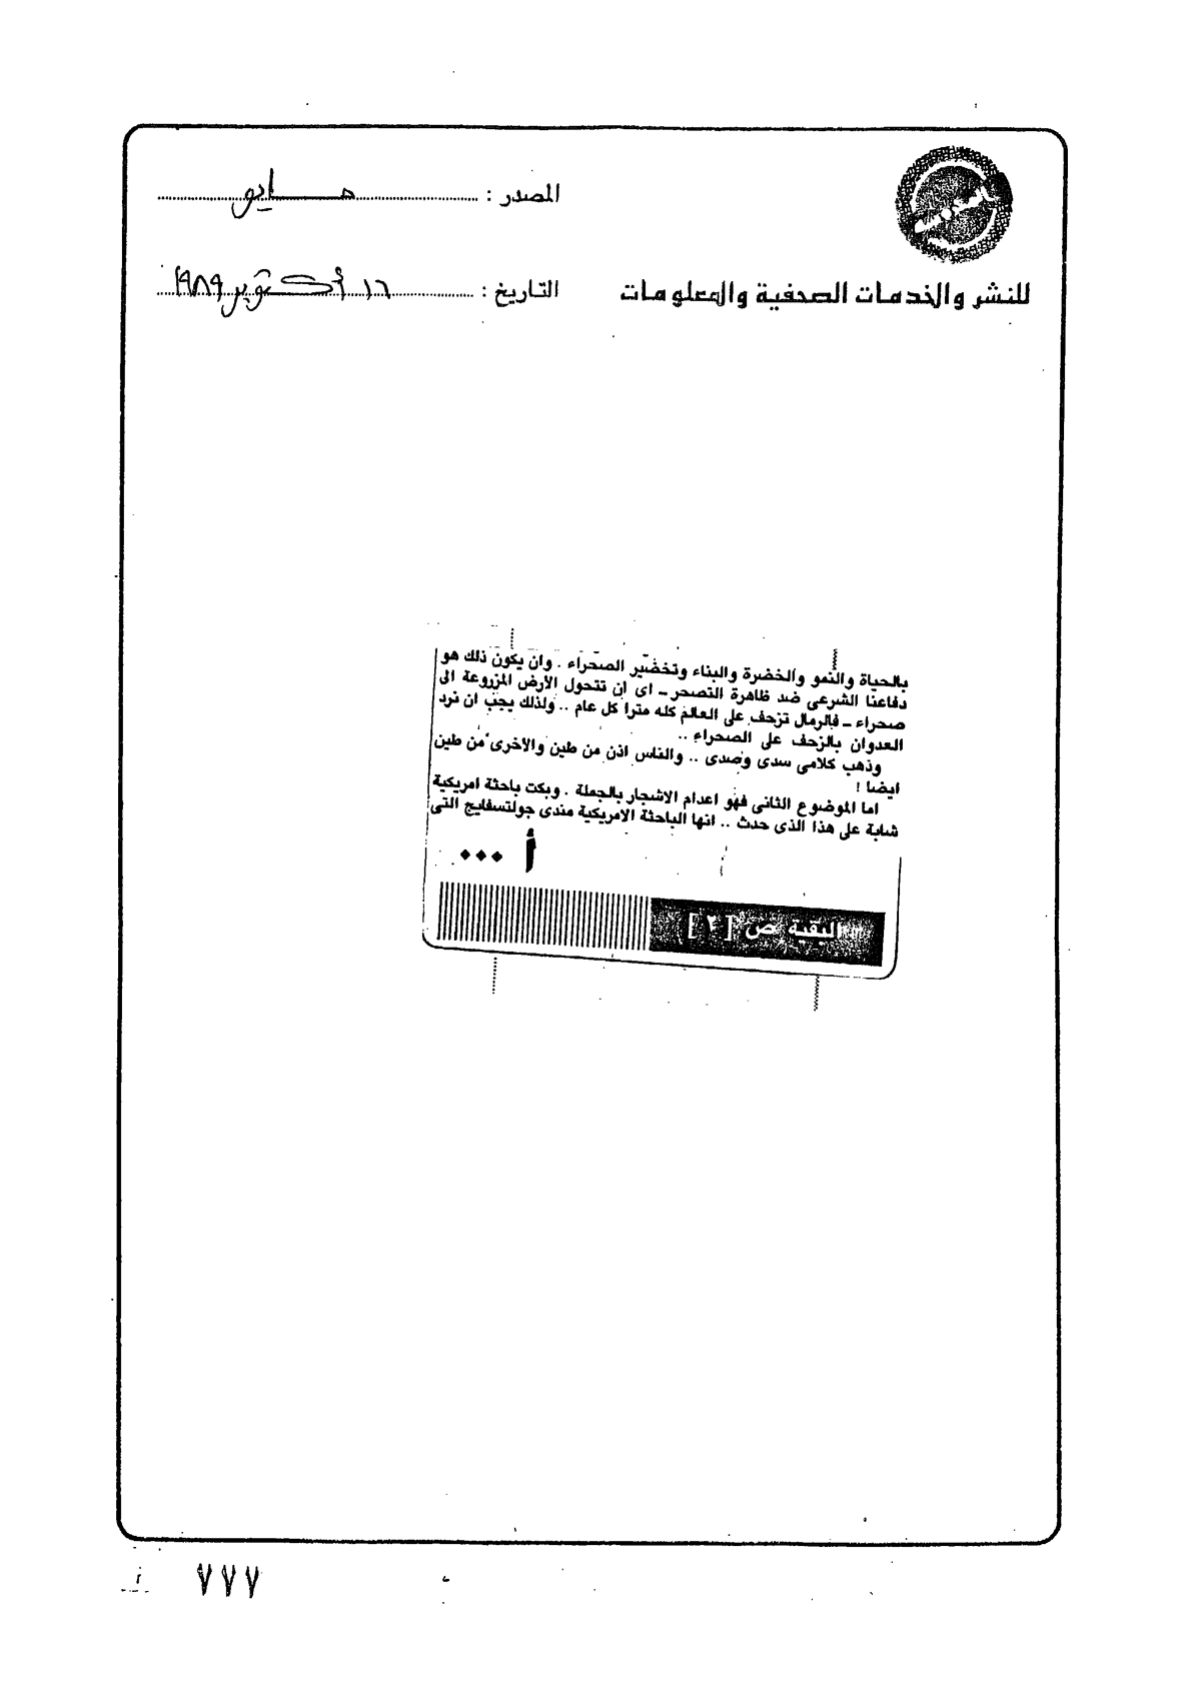 المصدر : مايو
للنشر والخدمات الصحفية والمعلومات
التاريخ : ١٦ أكتوبر ١٩٨٩
بالحياة والنمو والخضرة والبناء وتخضير الصحراء . وان يكون ذلك هو
دفاعنا الشرعى ضد ظاهرة التصحر ـ اى ان تتحول الأرض المزروعة الى
صحراء ـ فالرمال تزحف على العالم كله مترا كل عام .. ولذلك يجب ان نرد
العدوان بالزحف على الصحراء ..
وذهب كلامى سدى وصدى .. والناس اذن من طين والأخرى من طين
ايضا !
اما الموضوع الثانى فهو اعدام الاشجار بالجملة . وبكت باحثة امريكية
شابة على هذا الذى حدث .. انها الباحثة الامريكية مندى جولتسفايج التى
أ ...
البقية ص [ ٢ ]
٧٧٧